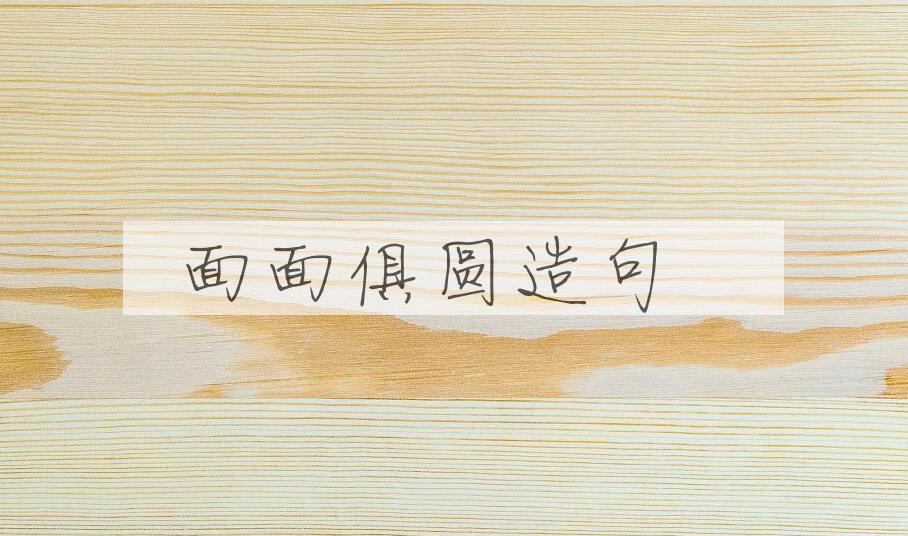 面面俱圆造句